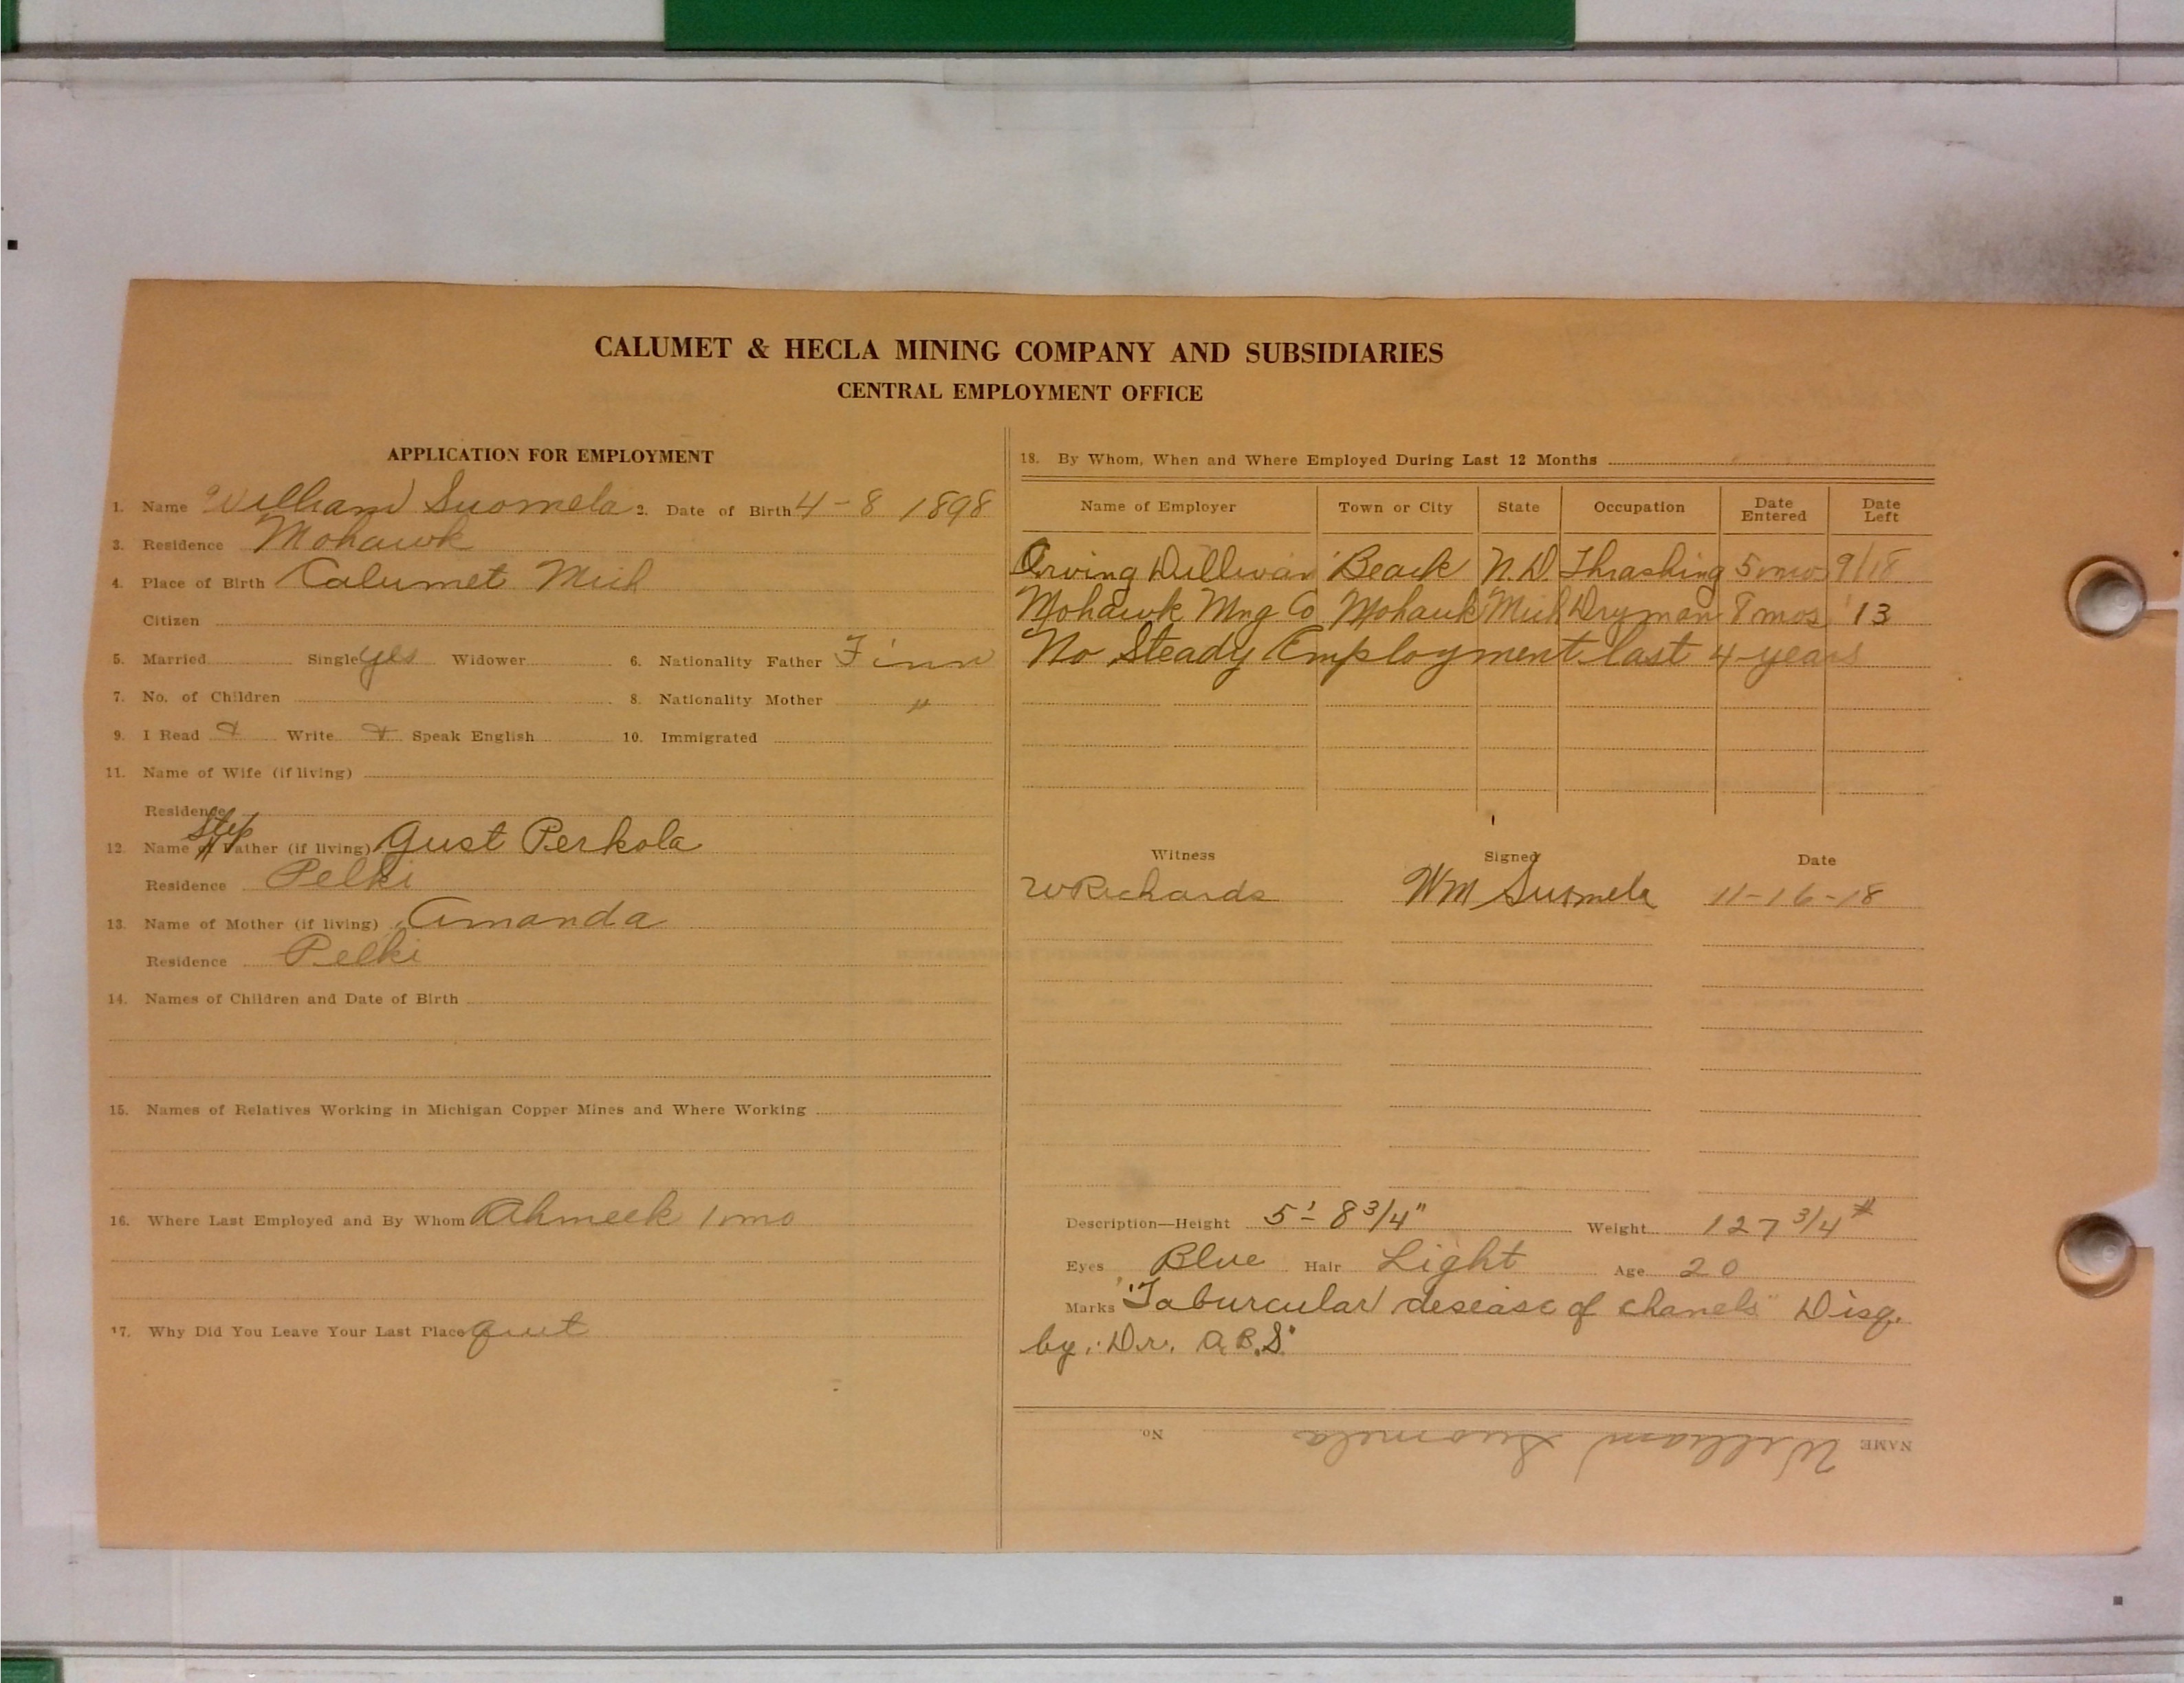 CALUMET & HECLA MINING COMPANY AND SUBSIDIARIES
CENTRAL EMPLOYMENT OFFICE
APPLICATION FOR EMPLOYMENT
1. Name William Suomela 2. Date of Birth 4-8 1898
3. Residence Mohawk
4. Place of Birth Calumet Mich
Citizen
5. Married Single yes Widower 6. Nationality Father Finn
7. No. of Children 8. Nationality Mother "
9. I Read & Write & Speak English 10. Immigrated
11. Name of Wife (if living)
Residence
Step
12. Name of Father (if living) Gust Perkola
Residence Pelki
13. Name of Mother (if living) Amanda
Residence Pelki
14. Names of Children and Date of Birth
15. Names of Relatives Working in Michigan Copper Mines and Where Working
16. Where Last Employed and By Whom Ahmeek 1 mo
17. Why Did You Leave Your Last Place quit
18. By Whom, When and Where Employed During Last 12 Months
Name of Employer Town or City State Occupation Date Entered Date Left
Orving Dullivan Beack N.D. Thrashing 5 mos 9/18
Mohawk Mng Co Mohawk Mich Dryman 8 mos '13
No Steady Employment last 4 years
Witness Signed Date
W Richards Wm Suomela 11-16-18
Description—Height 5'- 8 3/4" Weight 127 3/4 #
Eyes Blue Hair Light Age 20
Marks "Taburcular desease of chanels" Disq.
by. Dr. A.B.S.
NAME William Suomela No.